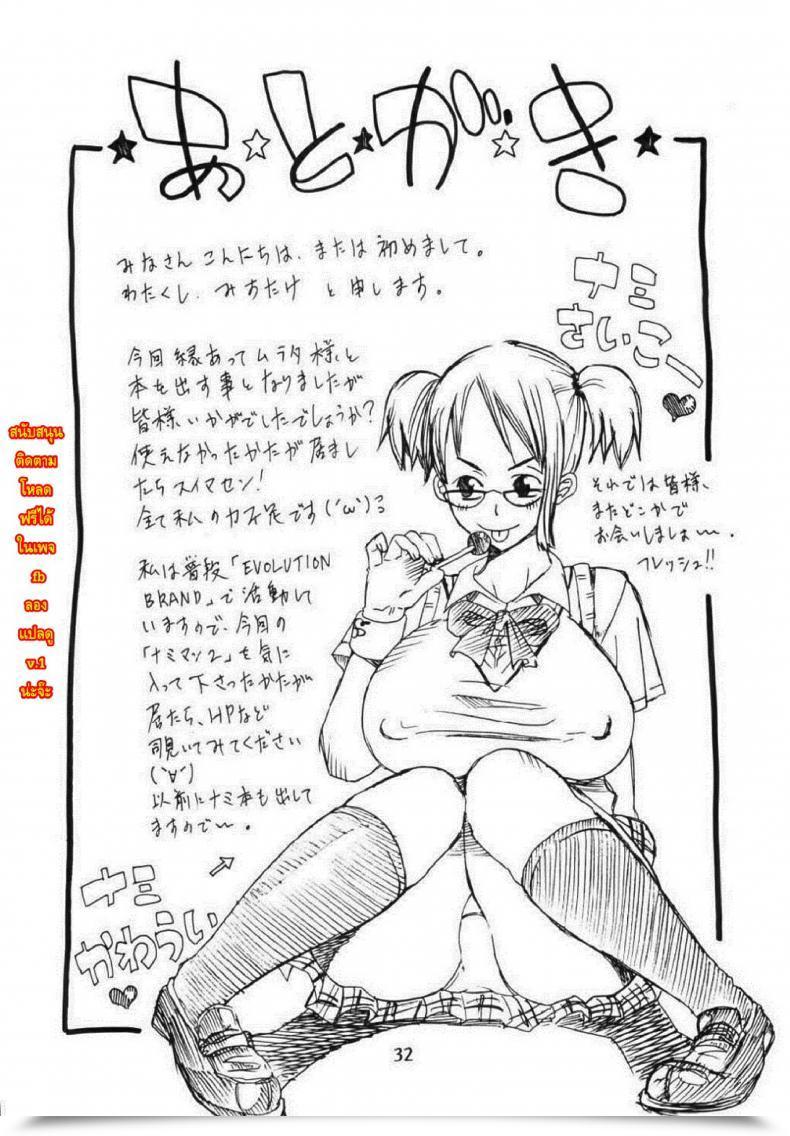 あとがき
みなさん こんにちは、または初めまして。
わたくし、みすたけ と申します。
ナミ
さいこー
今回縁あってムラタ様と
本を出す事となりましたが
皆様いかがでしたでしょうか?
使えなかったかたが居まし
たらスイマセン!
全て私のカ不足です(´ω`)ミ
それでは皆様、
またどこかで
お会いしましょ〜。
フレッシュ!!
私は普段「EVOLUTION
BRAND」で活動して
いますので、今回の
「ナミマン2」を気に
入って下さったかたが
居たら、HPなど
覗いてみてください
(´∀`)
以前にナミ本も出して
ますので〜。
ナミ
かわうい
สนับสนุน
ติดตาม
โหลด
ฟรีได้
ในเพจ
fb
ลอง
แปลดู
v.1
น่ะจ๊ะ
32